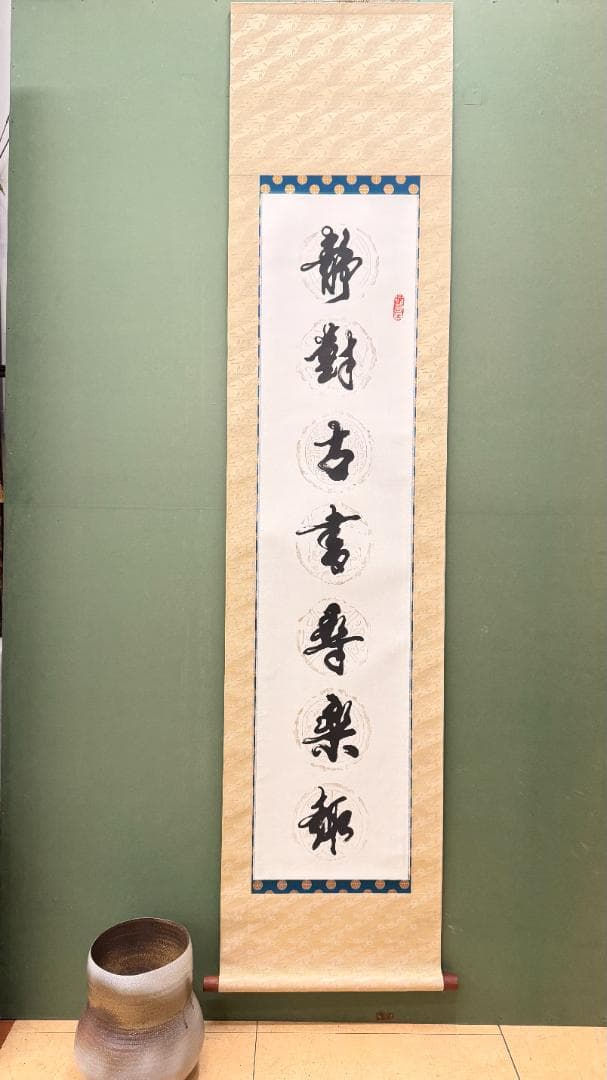 靜對古書尋樂趣